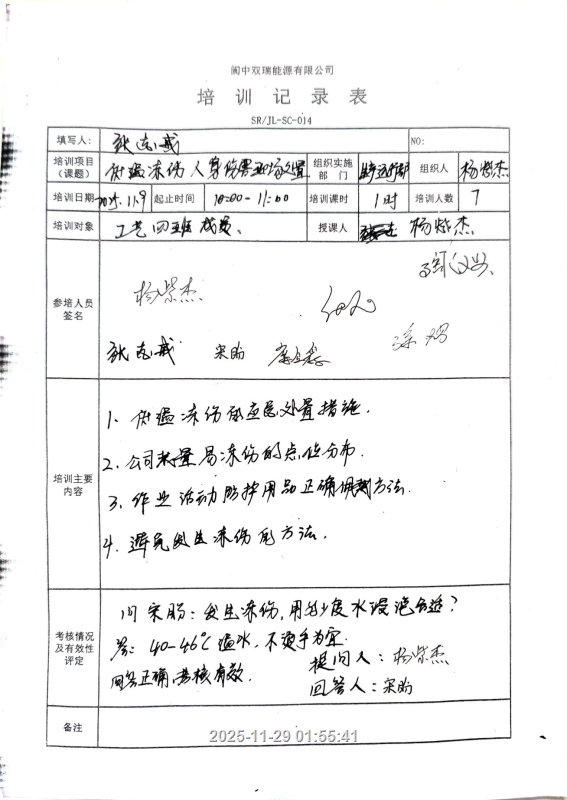 阆中双瑞能源有限公司
培训记录表
SR/JL-SC-014
填写人: 张志成 NO:
培训项目(课题) 低温冻伤人身伤害现场处置 组织实施部门 生产运行部 组织人 杨紫杰
培训日期 2025.11.9 起止时间 10:00-11:00 培训课时 1时 培训人数 7
培训对象 工艺四班成员. 授课人 杨紫杰
参培人员签名
杨紫杰
张志成 宋盼
培训主要内容
1、低温冻伤的应急处置措施.
2、公司易冻伤的点位分布.
3、作业活动防护用品正确佩戴方法.
4、避免发生冻伤的方法.
考核情况及有效性评定
问宋盼:发生冻伤,用多少度水浸泡合适?
答:40-46℃温水,不烫手为宜.
提问人:杨紫杰
回答正确,考核有效.
回答人:宋盼
备注
2025-11-29 01:55:41